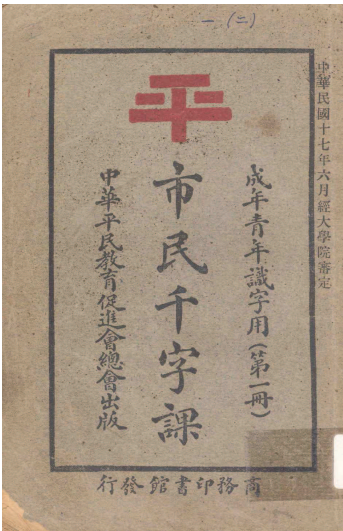 一(二)
中華民國十七年六月經大學院審定
平
成年青年識字用(第一冊)
市民千字課
中華平民教育促進會總會出版
行發館書印務商